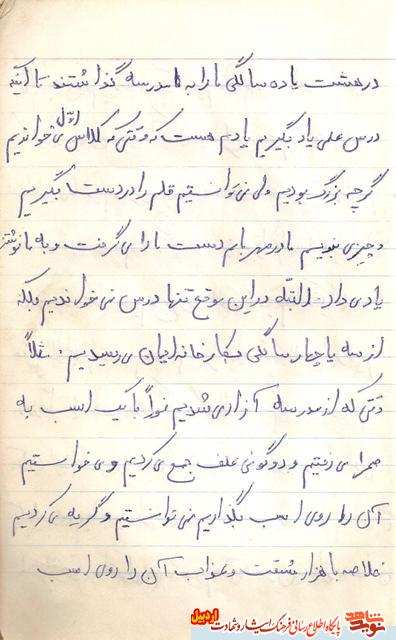 در هشت یا ده سالگی ما را به مدرسه گذاشتند تا آنکه
درس علمی یاد بگیریم یادم هست که وقتی که کلاس اول می خواندیم
گرچه بزرگ بودیم ولی نمی توانستیم قلم را در دست بگیریم
و چیزی بنویسیم مادر مهربانم دست ما را می گرفت و به ما نوشتن
یاد می داد. البته در این موقع تنها درس نمی خواندیم بلکه
از سه یا چهار سالگی بکار خانه ایمان می رسیدیم. مثلاً
وقتی که از مدرسه آزاد می شدیم فوراً با یک اسب به
صحرا می رفتیم و دو گونی علف جمع می کردیم و می خواستیم
آن را روی اسب بگذاریم نمی توانستیم و گریه می کردیم
خلاصه با هزار مشقت و عذاب آن را روی اسب
نوید شاهد اردبیل
پایگاه اطلاع رسانی فرهنگ ایثار و شهادت